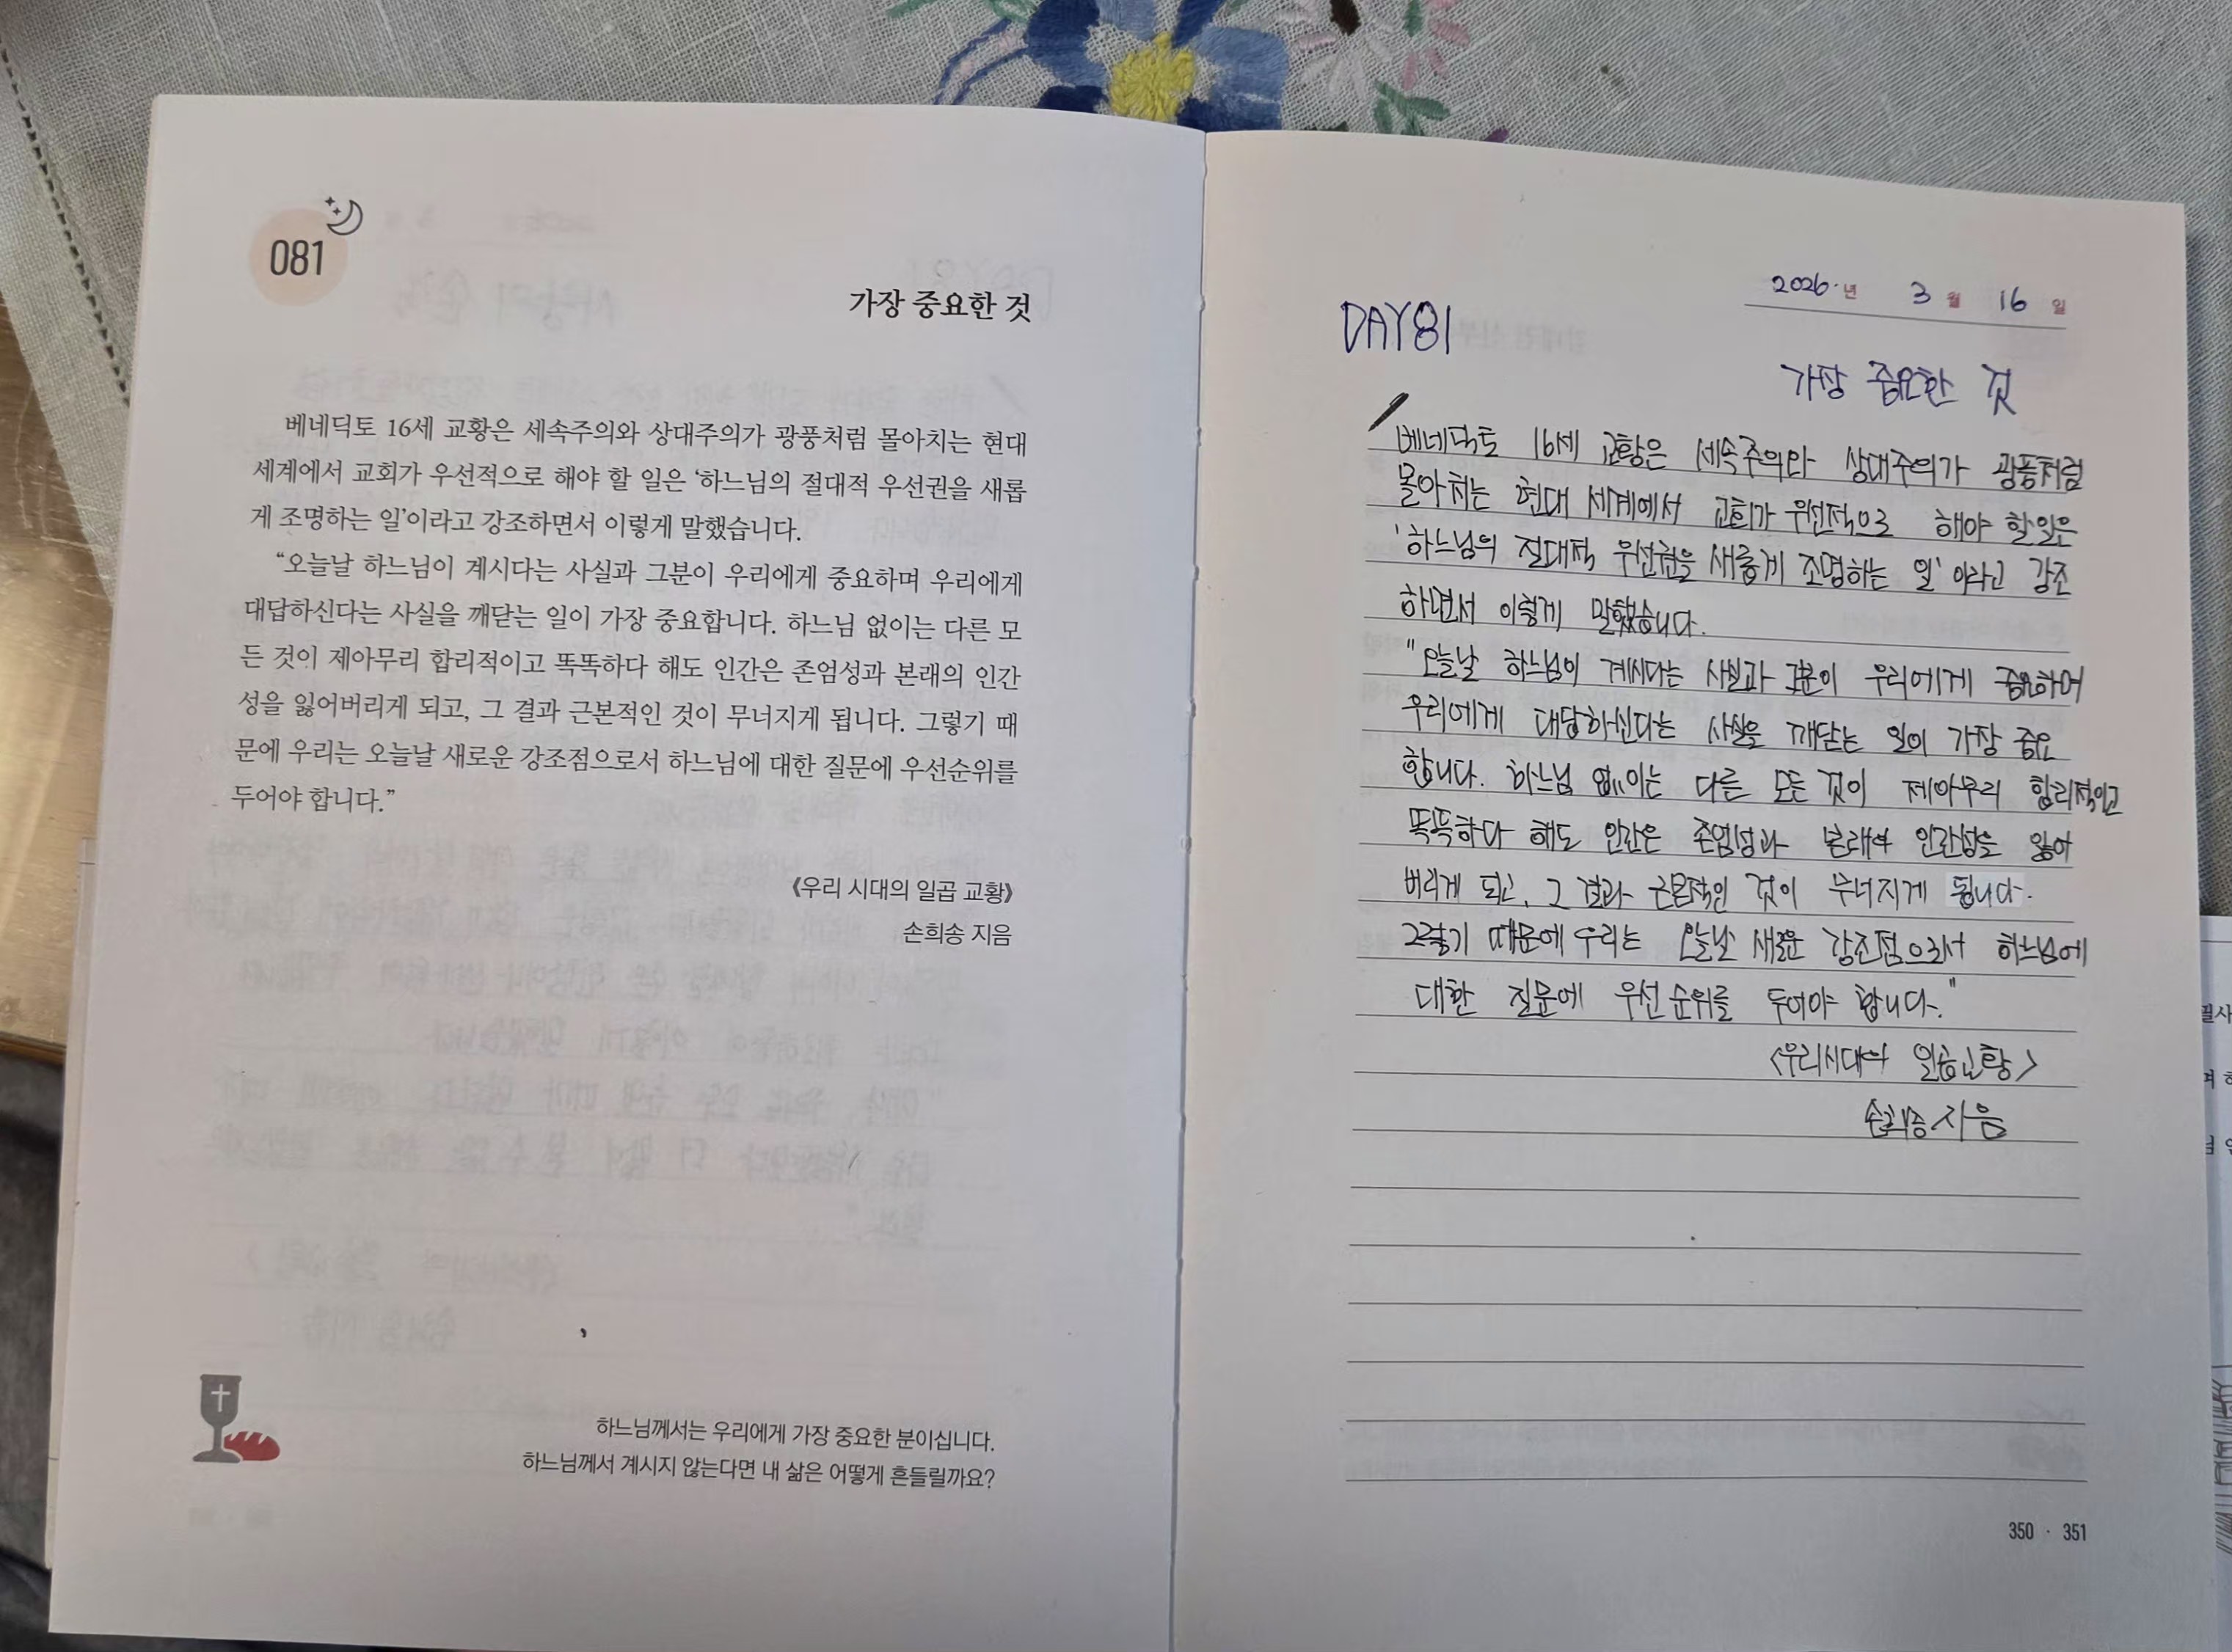 081
가장 중요한 것
베네딕토 16세 교황은 세속주의와 상대주의가 광풍처럼 몰아치는 현대
세계에서 교회가 우선적으로 해야 할 일은 ‘하느님의 절대적 우선권을 새롭
게 조명하는 일’이라고 강조하면서 이렇게 말했습니다.
“오늘날 하느님이 계시다는 사실과 그분이 우리에게 중요하며 우리에게
대답하신다는 사실을 깨닫는 일이 가장 중요합니다. 하느님 없이는 다른 모
든 것이 제아무리 합리적이고 똑똑하다 해도 인간은 존엄성과 본래의 인간
성을 잃어버리게 되고, 그 결과 근본적인 것이 무너지게 됩니다. 그렇기 때
문에 우리는 오늘날 새로운 강조점으로서 하느님에 대한 질문에 우선순위를
두어야 합니다.”
《우리 시대의 일곱 교황》
손희송 지음
하느님께서는 우리에게 가장 중요한 분이십니다.
하느님께서 계시지 않는다면 내 삶은 어떻게 흔들릴까요?
2026.년 3월 16일
DAY81
가장 중요한 것
베네딕토 16세 교황은 세속주의와 상대주의가 광풍처럼
몰아치는 현대 세계에서 교회가 우선적으로 해야 할일은
'하느님의 절대적 우선권을 새롭게 조명하는 일' 이라고 강조
하면서 이렇게 말했습니다.
"오늘날 하느님이 계시다는 사실과 그분이 우리에게 중요하며
우리에게 대답하신다는 사실을 깨닫는 일이 가장 중요
합니다. 하느님 없이는 다른 모든 것이 제아무리 합리적이고
똑똑하다 해도 인간은 존엄성과 본래의 인간성을 잃어
버리게 되고, 그 결과 근본적인 것이 무너지게 됩니다.
그렇기 때문에 우리는 오늘날 새로운 강조점으로서 하느님에
대한 질문에 우선순위를 두어야 합니다."
<우리시대의 일곱교황>
손희송 지음
350 · 351